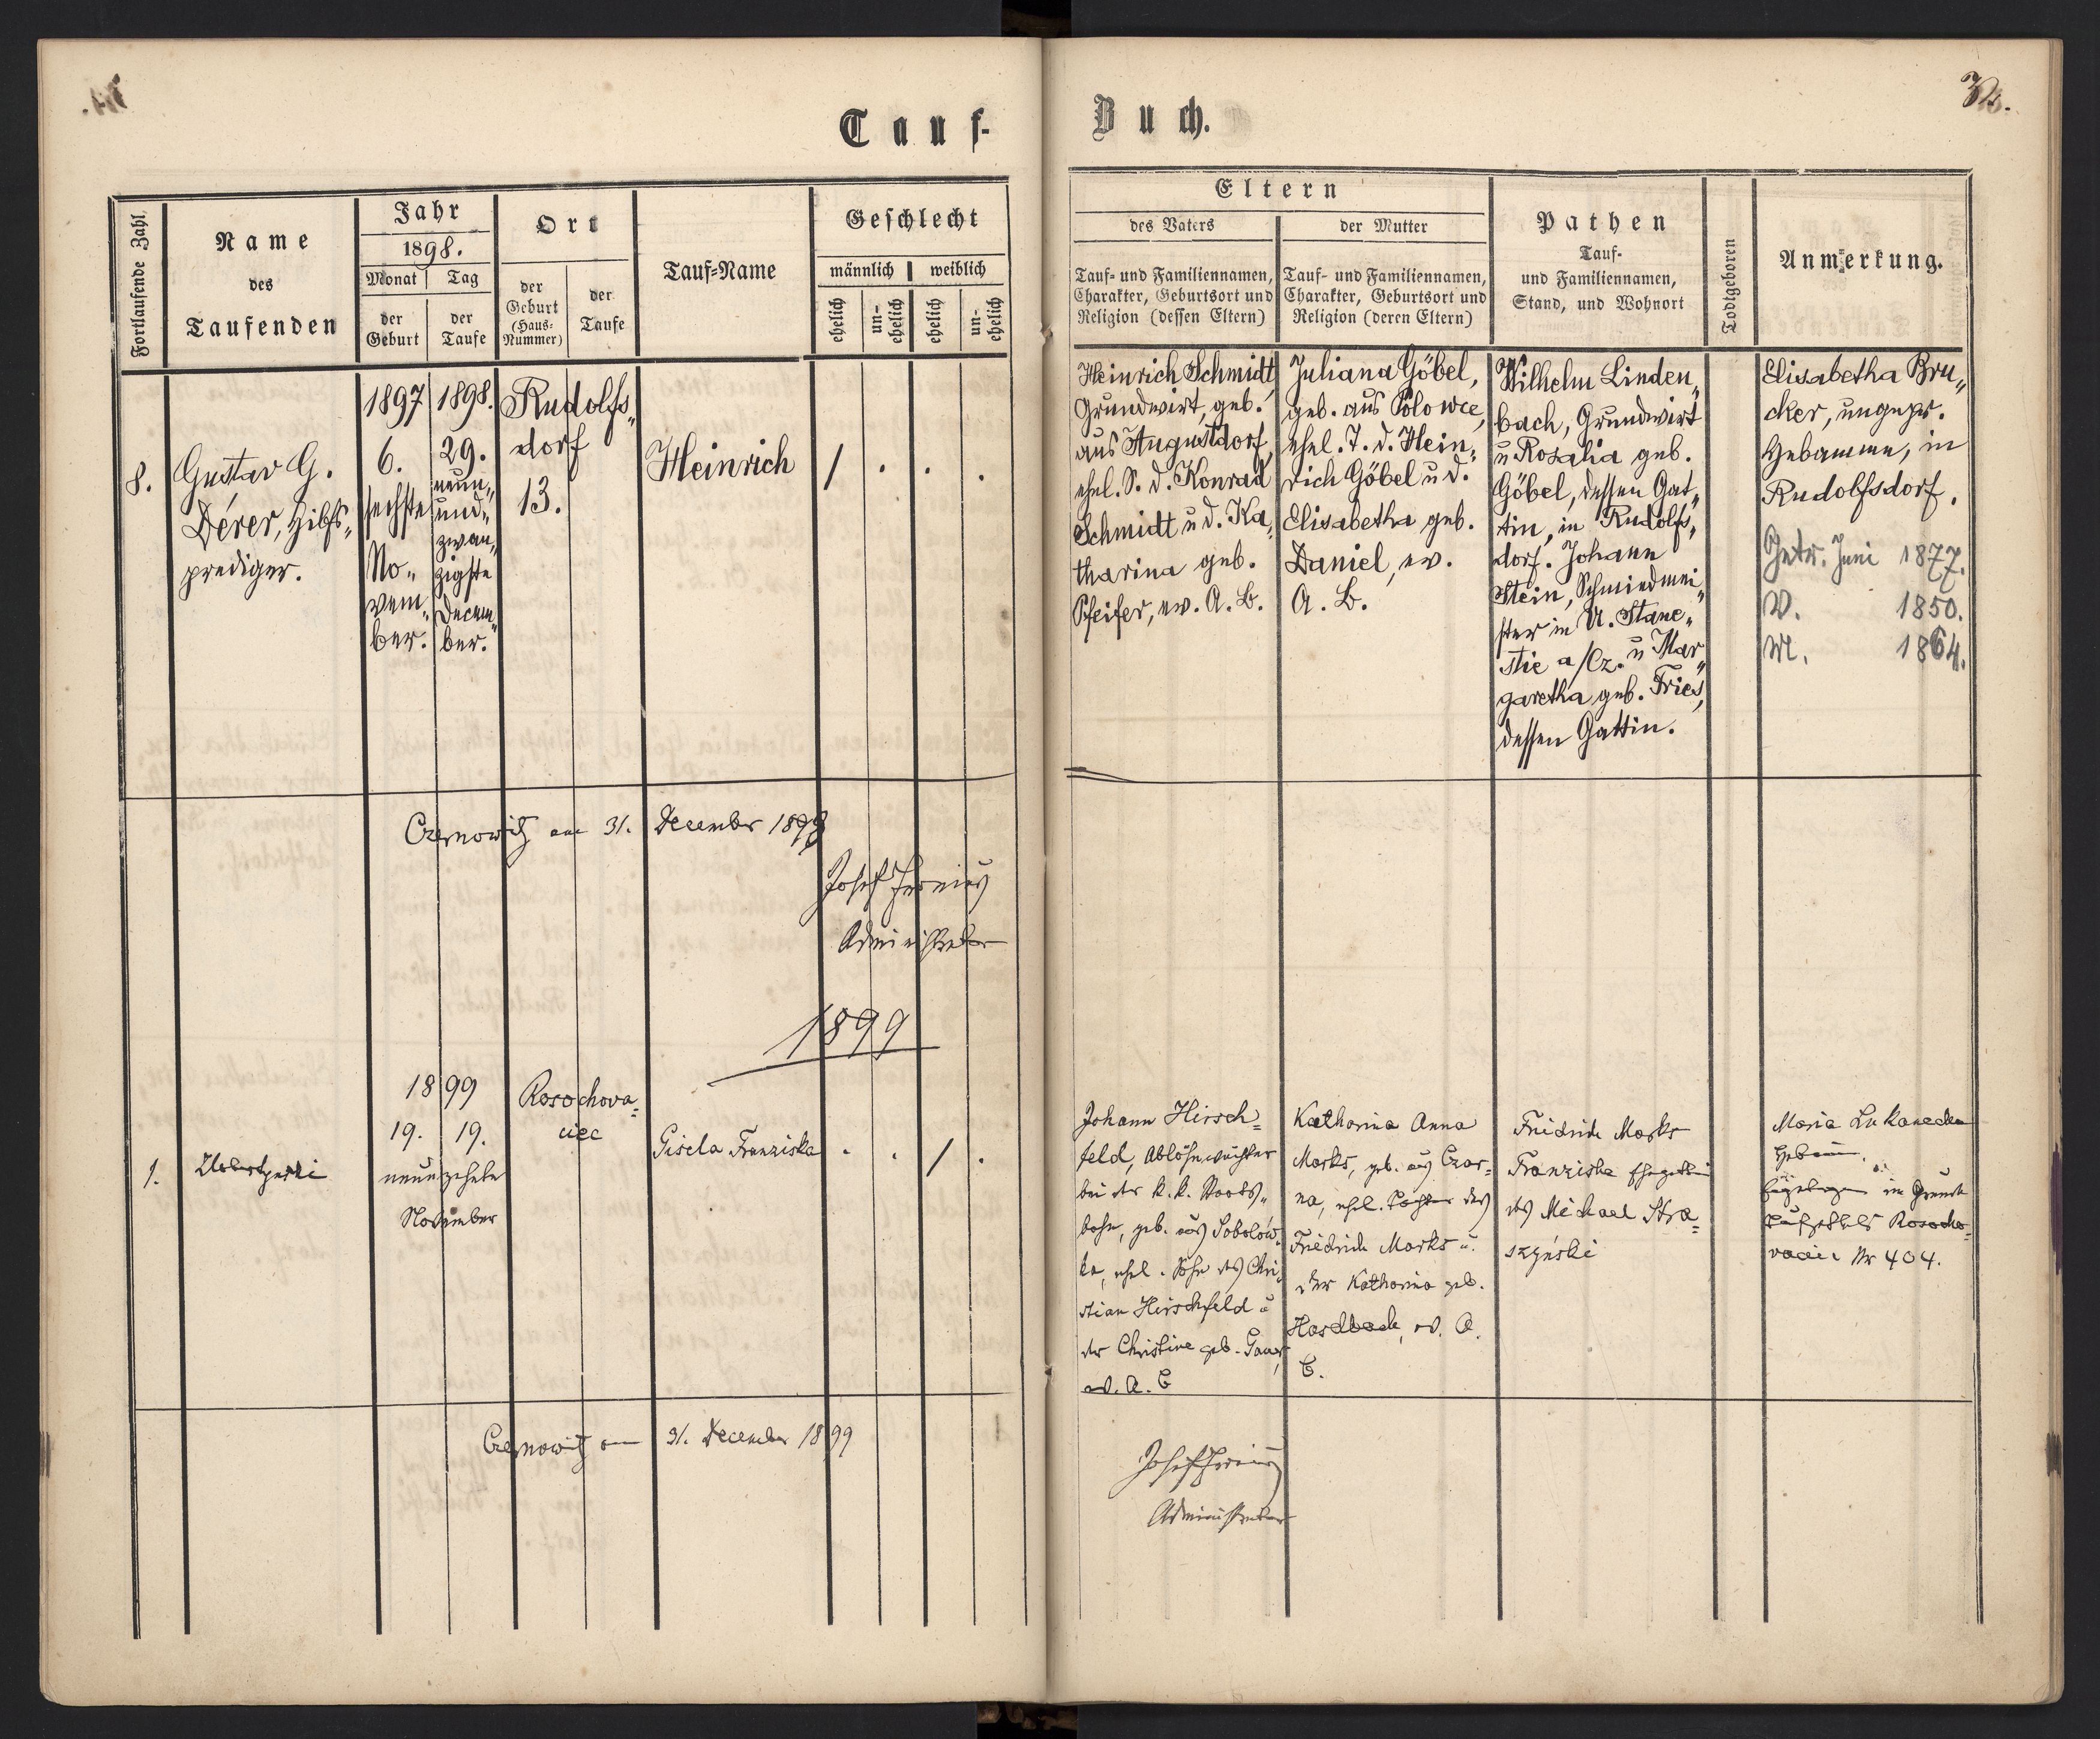 32.
Tauf-
Buch.
Fortlaufende Zahl.
Name
des
Taufenden
Jahr
1898.
Monat
Tag
der
Geburt
der
Taufe
Ort
der
Geburt
(Haus-
Nummer)
der
Taufe
Tauf=Name
Geschlecht
männlich
weiblich
ehelich
un-
ehelich
ehelich
un-
ehelich
Eltern
des Vaters
Tauf= und Familiennamen,
Charakter, Geburtsort und
Religion (dessen Eltern)
der Mutter
Tauf- und Familiennamen,
Charakter, Geburtsort und
Religion (deren Eltern)
Pathen
Tauf-
und Familiennamen,
Stand, und Wohnort
Todtgeboren
Anmerkung.
8.
Gustav G.
Dérer, Hilfs„
prediger.
1897
6.
sechste
No„
vem„
ber.
1898.
29.
neun„
und„
zwan„
zigste
Decem„
ber.
Rudolfs„
dorf
13.
Heinrich
/ . . .
Heinrich Schmidt
Grundwirt, geb.
aus Augustdorf,
ehel. S. d. Konrad
Schmidt u d. Ka„
tharina geb.
Pfeifer, ev. A. B.
Juliana Göbel,
geb. aus Polowce,
ehel. T. d. Hein„
rich Göbel u d.
Elisabetha geb.
Daniel, ev.
A. B.
Wilhelm Linden„
bach, Grundwirt
u Rosalia geb.
Göbel, dessen Gat„
tin, in Rudolfs„
dorf. Johann
Stein, Schmiedmei„
ster in U. Stane„
stie a/Cz. u Mar„
garetha geb. Fries,
dessen Gattin.
Elisabetha Bru„
cker, ungepr.
Hebamme, in
Rudolfsdorf.
Getr. Juni 1877.
V. 1850.
M. 1864.
Czernowitz am 31. December 1898
Josef
Administrator
1899
1.
1899
19. 19.
neunzehnte
November
Rosochova=
ciec
Gisela Franziska
. . / .
Johann Hirsch=
feld, Ablöswächter
bei der k. k. Staats„
bahn, geb. aus Sobolów„
ka, ehel. Sohn des Chri„
stian Hirschfeld u
der Christine geb. Gauer,
ev. A. B
Katharina Anna
Marks, geb. aus Czar=
na, ehel. Tochter des
Friedrich Marks u.
der Katharina geb.
Hardback, ev. A.
B.
Friedrich Marks
Franziska Ehegattin
des Michael Stra=
szyński
Maria Lukanecka
Hebam̄.
im Grund
Rosocho=
vaciec Nr 404.
Czernowitz am 31. December 1899
Josef
Administrator